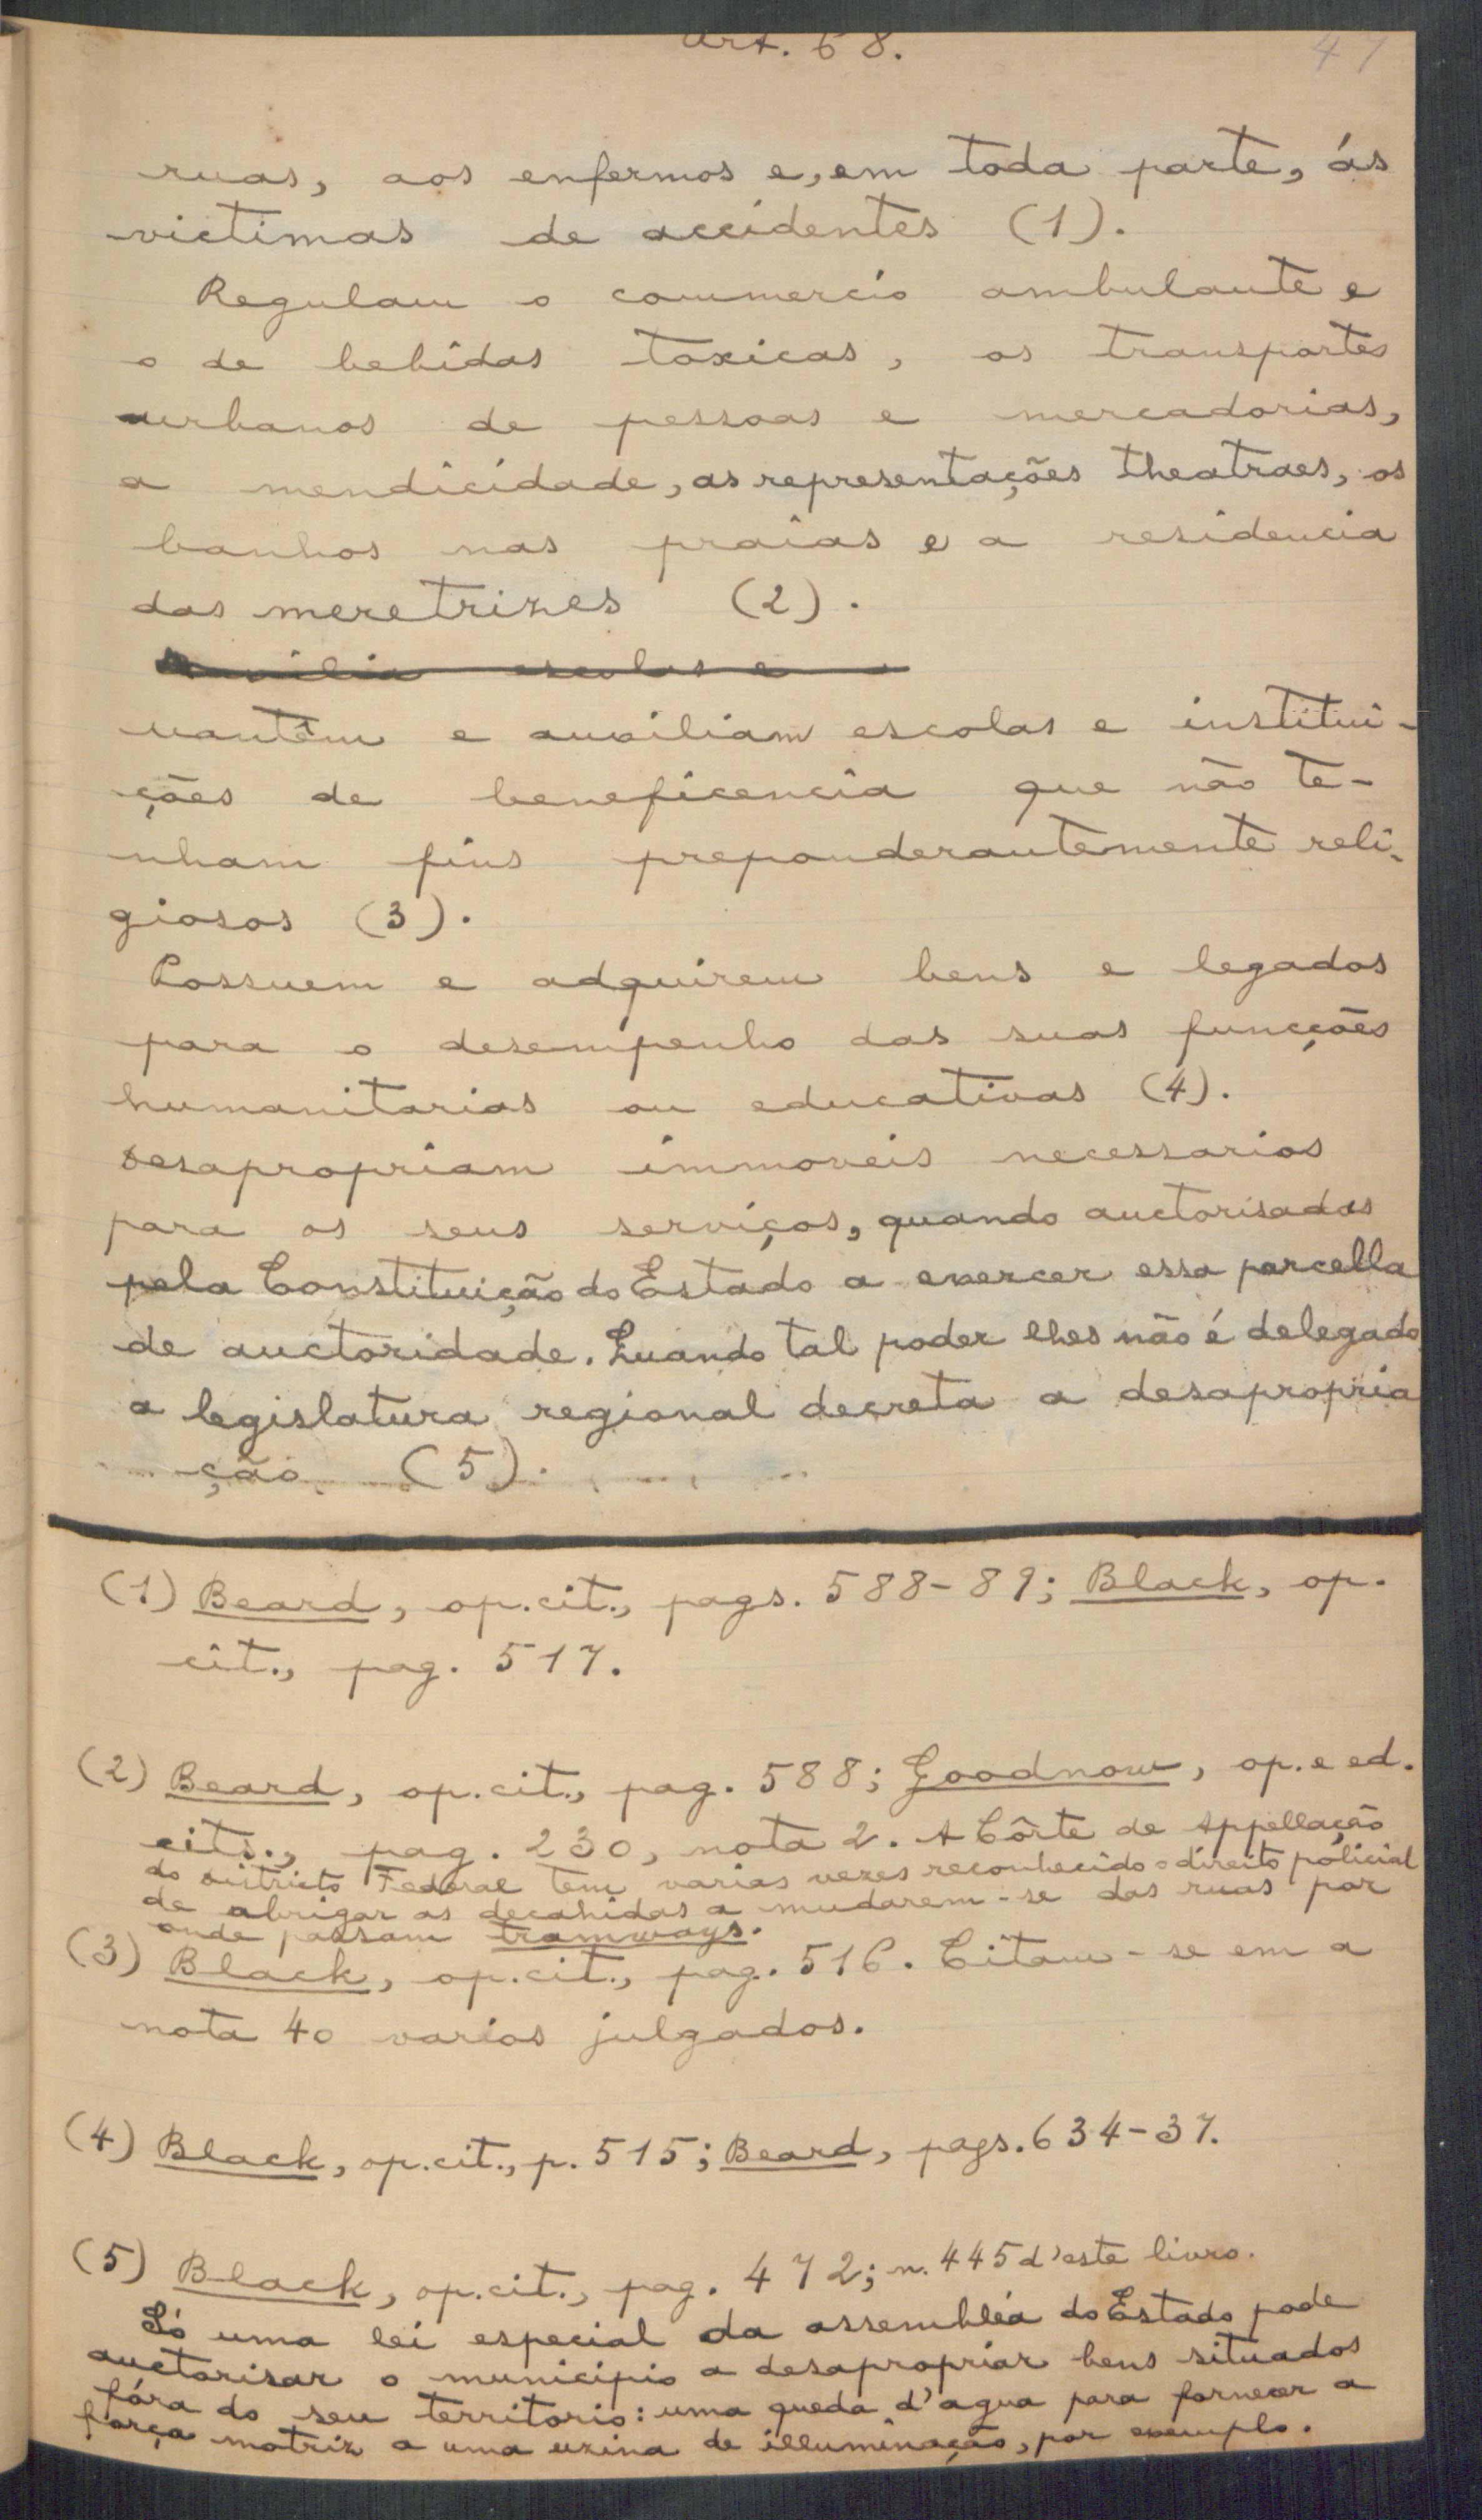 Art. 68.
47
ruas, aos enfermos e, em toda parte, ás
victimas de accidentes (1).
Regulam o commercio ambulante e
o de bebidas toxicas, os transportes
urbanos de pessoas e mercadorias,
a mendicidade, as representações theatraes, os
banhos nas praias e a residencia
das meretrizes (2).
Auxilia escolas e
mantêm e auxiliam escolas e institui-
ções de beneficencia que não te-
nham fins preponderantemente reli-
giosos (3).
Possuem e adquirem bens e legados
para o desempenho das suas funcções
humanitarias ou educativas (4).
Desapropriam immoveis necessarios
para os seus serviços, quando auctorisados
pela Constituição do Estado a exercer essa parcella
de auctoridade. Quando tal poder lhes não é delegado
a legislatura regional decreta a desapropria
ção (5).
(1) Beard, op. cit., pags. 588-89; Black, op.
cit., pag. 517.
(2) Beard, op. cit., pag. 588; Goodnow, op. e ed.
cits., pag. 230, nota 2. A Côrte de Appellação
do Districto Federal tem varias vezes reconhecido o direito policial
de obrigar as decahidas a mudarem-se das ruas por
onde passam tramways.
(3) Black, op. cit., pag. 516. Citam-se em a
nota 40 varios julgados.
(4) Black, op. cit., p. 515; Beard, pags. 634-37.
(5) Black, op. cit., pag. 472; n. 445 d'este livro.
Só uma lei especial da assembléa do Estado pode
auctorisar o municipio a desapropriar bens situados
fóra do seu territorio: uma queda d'agua para fornecer a
força motriz a uma uzina de illuminação, por exemplo.